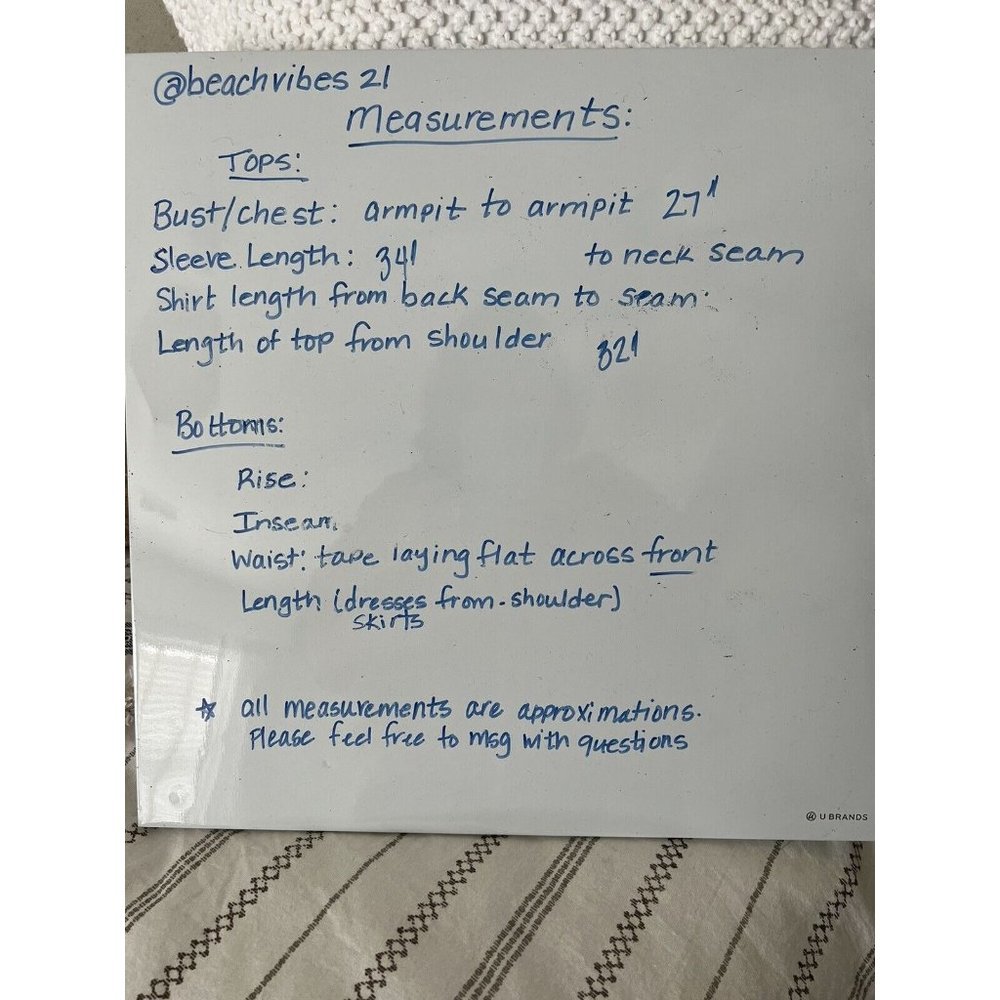 @beachvibes 21
Measurements:
Tops:
Bust/chest: armpit to armpit 27"
Sleeve Length: 34" to neck seam
Shirt length from back seam to seam.
Length of top from shoulder 32"
Bottoms:
Rise:
Inseam
Waist: tape laying flat across front
Length (dresses from shoulder)
skirts
☆ all measurements are approximations.
Please feel free to msg with questions
U BRANDS